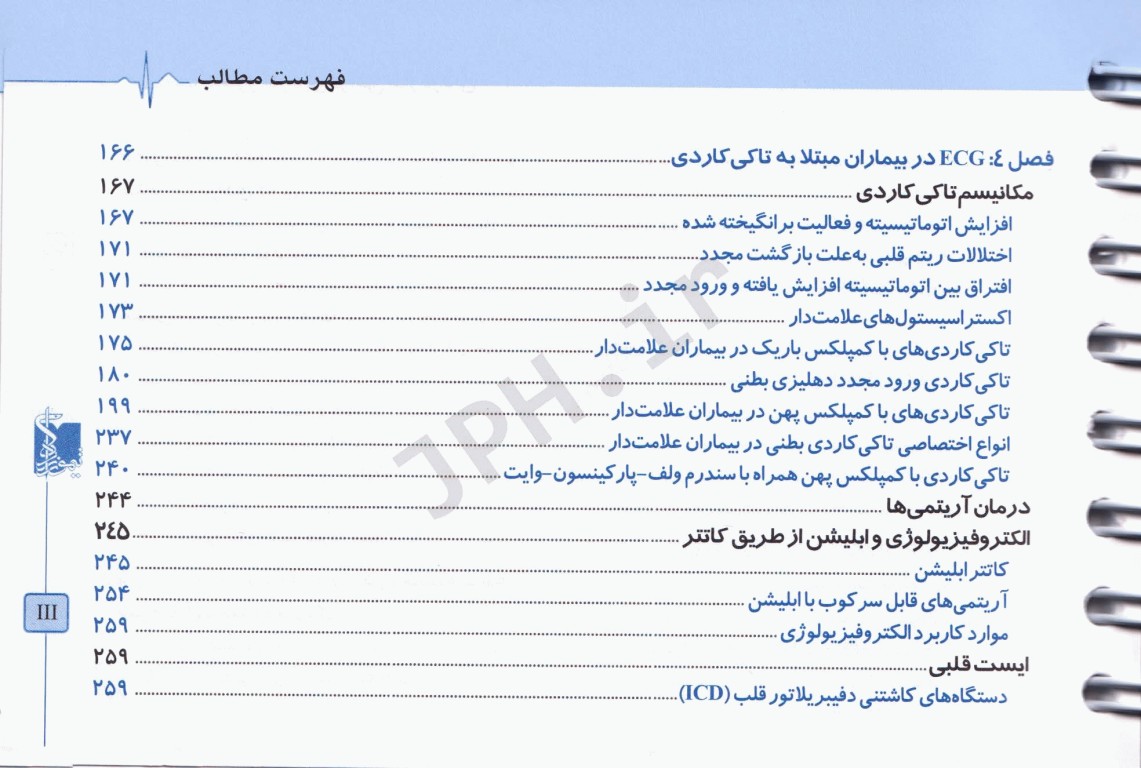 فهرست مطالب
فصل ٤: ECG در بیماران مبتلا به تاکی‌کاردی ۱۶۶
مکانیسم تاکی‌کاردی ۱۶۷
افزایش اتوماتیسیته و فعالیت برانگیخته شده ۱۶۷
اختلالات ریتم قلبی به‌علت بازگشت مجدد ۱۷۱
افتراق بین اتوماتیسیته افزایش یافته و ورود مجدد ۱۷۱
اکستراسیستول‌های علامت‌دار ۱۷۳
تاکی‌کاردی‌های با کمپلکس باریک در بیماران علامت‌دار ۱۷۵
تاکی‌کاردی ورود مجدد دهلیزی بطنی ۱۸۰
تاکی‌کاردی‌های با کمپلکس پهن در بیماران علامت‌دار ۱۹۹
انواع اختصاصی تاکی‌کاردی بطنی در بیماران علامت‌دار ۲۳۷
تاکی‌کاردی با کمپلکس پهن همراه با سندرم ولف-پارکینسون-وایت ۲۴۰
درمان آریتمی‌ها ۲۴۴
الکتروفیزیولوژی و ابلیشن از طریق کاتتر ۲٤۵
کاتتر ابلیشن ۲۴۵
آریتمی‌های قابل سرکوب با ابلیشن ۲۵۴
موارد کاربرد الکتروفیزیولوژی ۲۵۹
ایست قلبی ۲۵۹
دستگاه‌های کاشتنی دفیبریلاتور قلب (ICD) ۲۵۹
III
JPH.ir